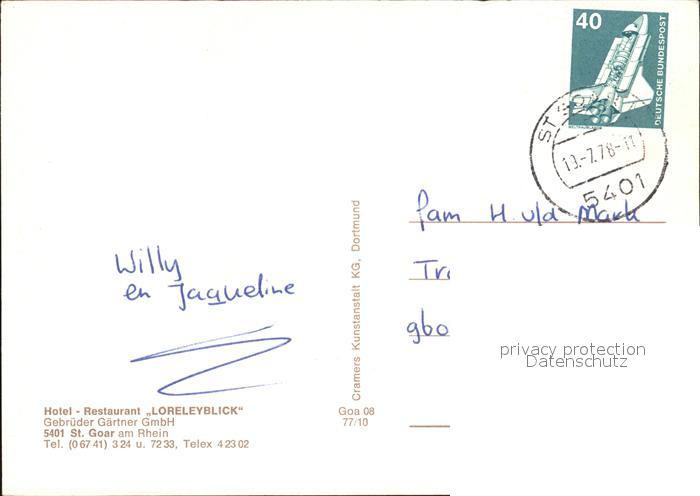 40
DEUTSCHE BUNDESPOST
ST GOAR
10.-7.78-11
5401
fam H. v/d Mark
gbo
Willy
en Jaqueline
Cramers Kunstanstalt KG, Dortmund
privacy protection
Datenschutz
Hotel - Restaurant „LORELEYBLICK"
Gebrüder Gärtner GmbH
5401 St. Goar am Rhein
Tel. (0 67 41) 3 24 u. 72 33, Telex 4 23 02
Goa 08
77/10